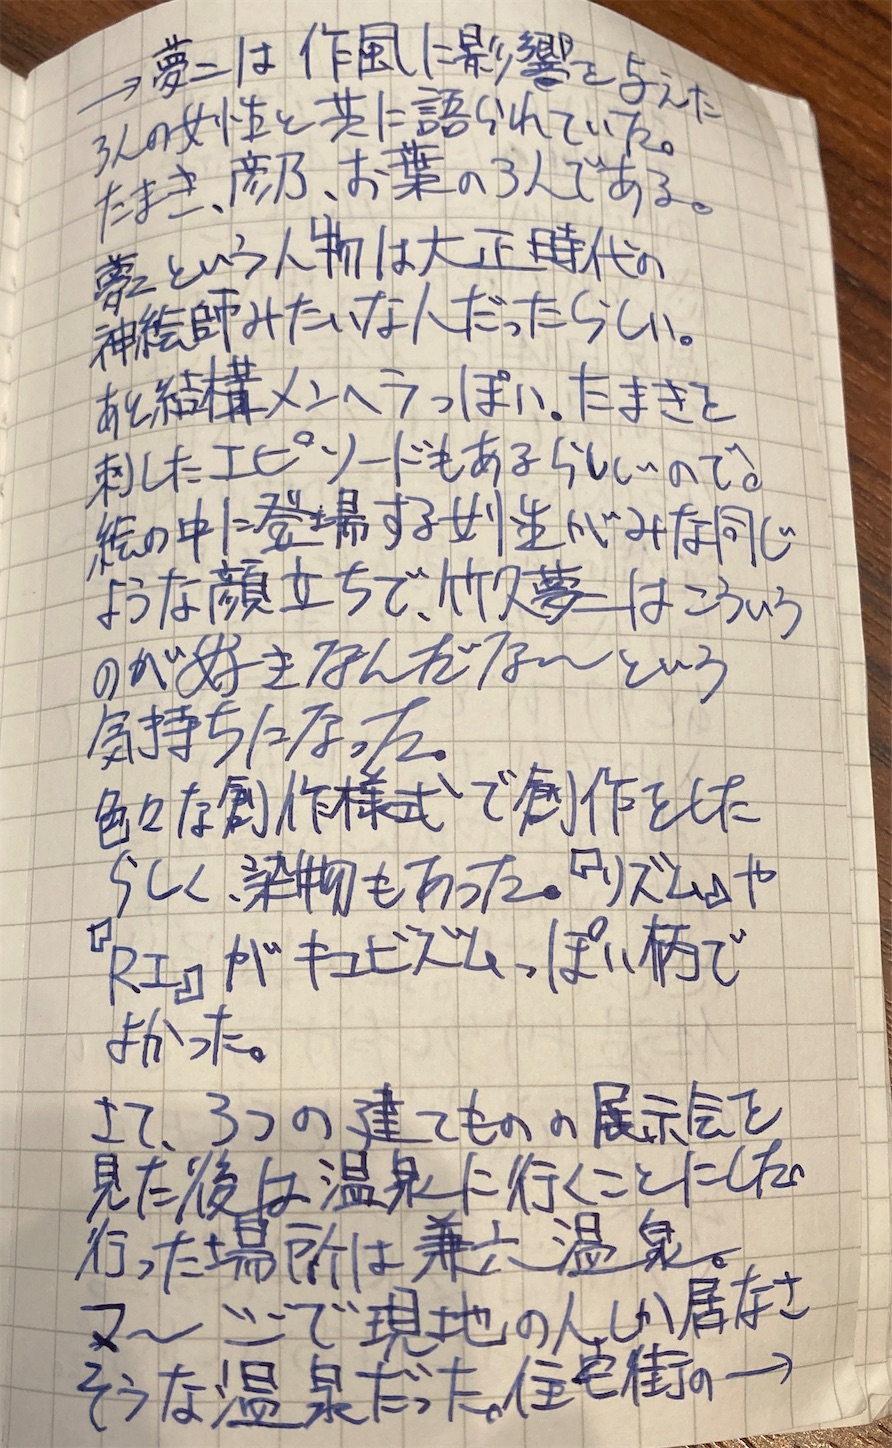 →夢二は作風に影響を与えた
3人の女性と共に語られていた。
たまき、彦乃、お葉の3人である。
夢二という人物は大正時代の
神絵師みたいな人だったらしい。
あと結構メンヘラっぽい。たまきを
刺したエピソードもあるらしいので。
絵の中に登場する女性がみな同じ
ような顔立ちで、竹久夢二はこういう
のが好きなんだな〜という
気持ちになった。
色々な創作様式で創作をした
らしく、染物もあった。『リズム』や
『RI』がキュビズムっぽい柄で
よかった。
さて、3つの建てものの展示会を
見た後は温泉に行くことにした。
行った場所は兼六温泉。
マ〜ジで現地の人しか居なさ
そうな温泉だった。住宅街の→